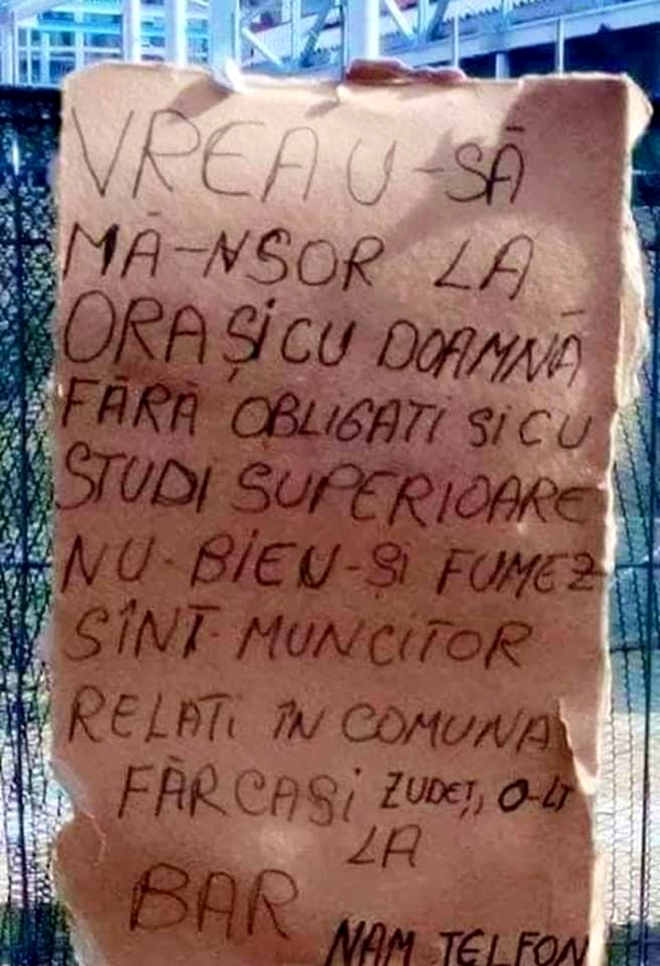 VREAU-SĂ
MĂ-NSOR LA
ORAȘI CU DOAMNĂ
FĂRĂ OBLIGATI SI CU
STUDI SUPERIOARE
NU-BIEU-ȘI FUMEZ
SÎNT-MUNCITOR
RELATI ÎN COMUNA
FĂRCAȘI ZUDEȚ, O-LT
LA
BAR
NAM TELFON